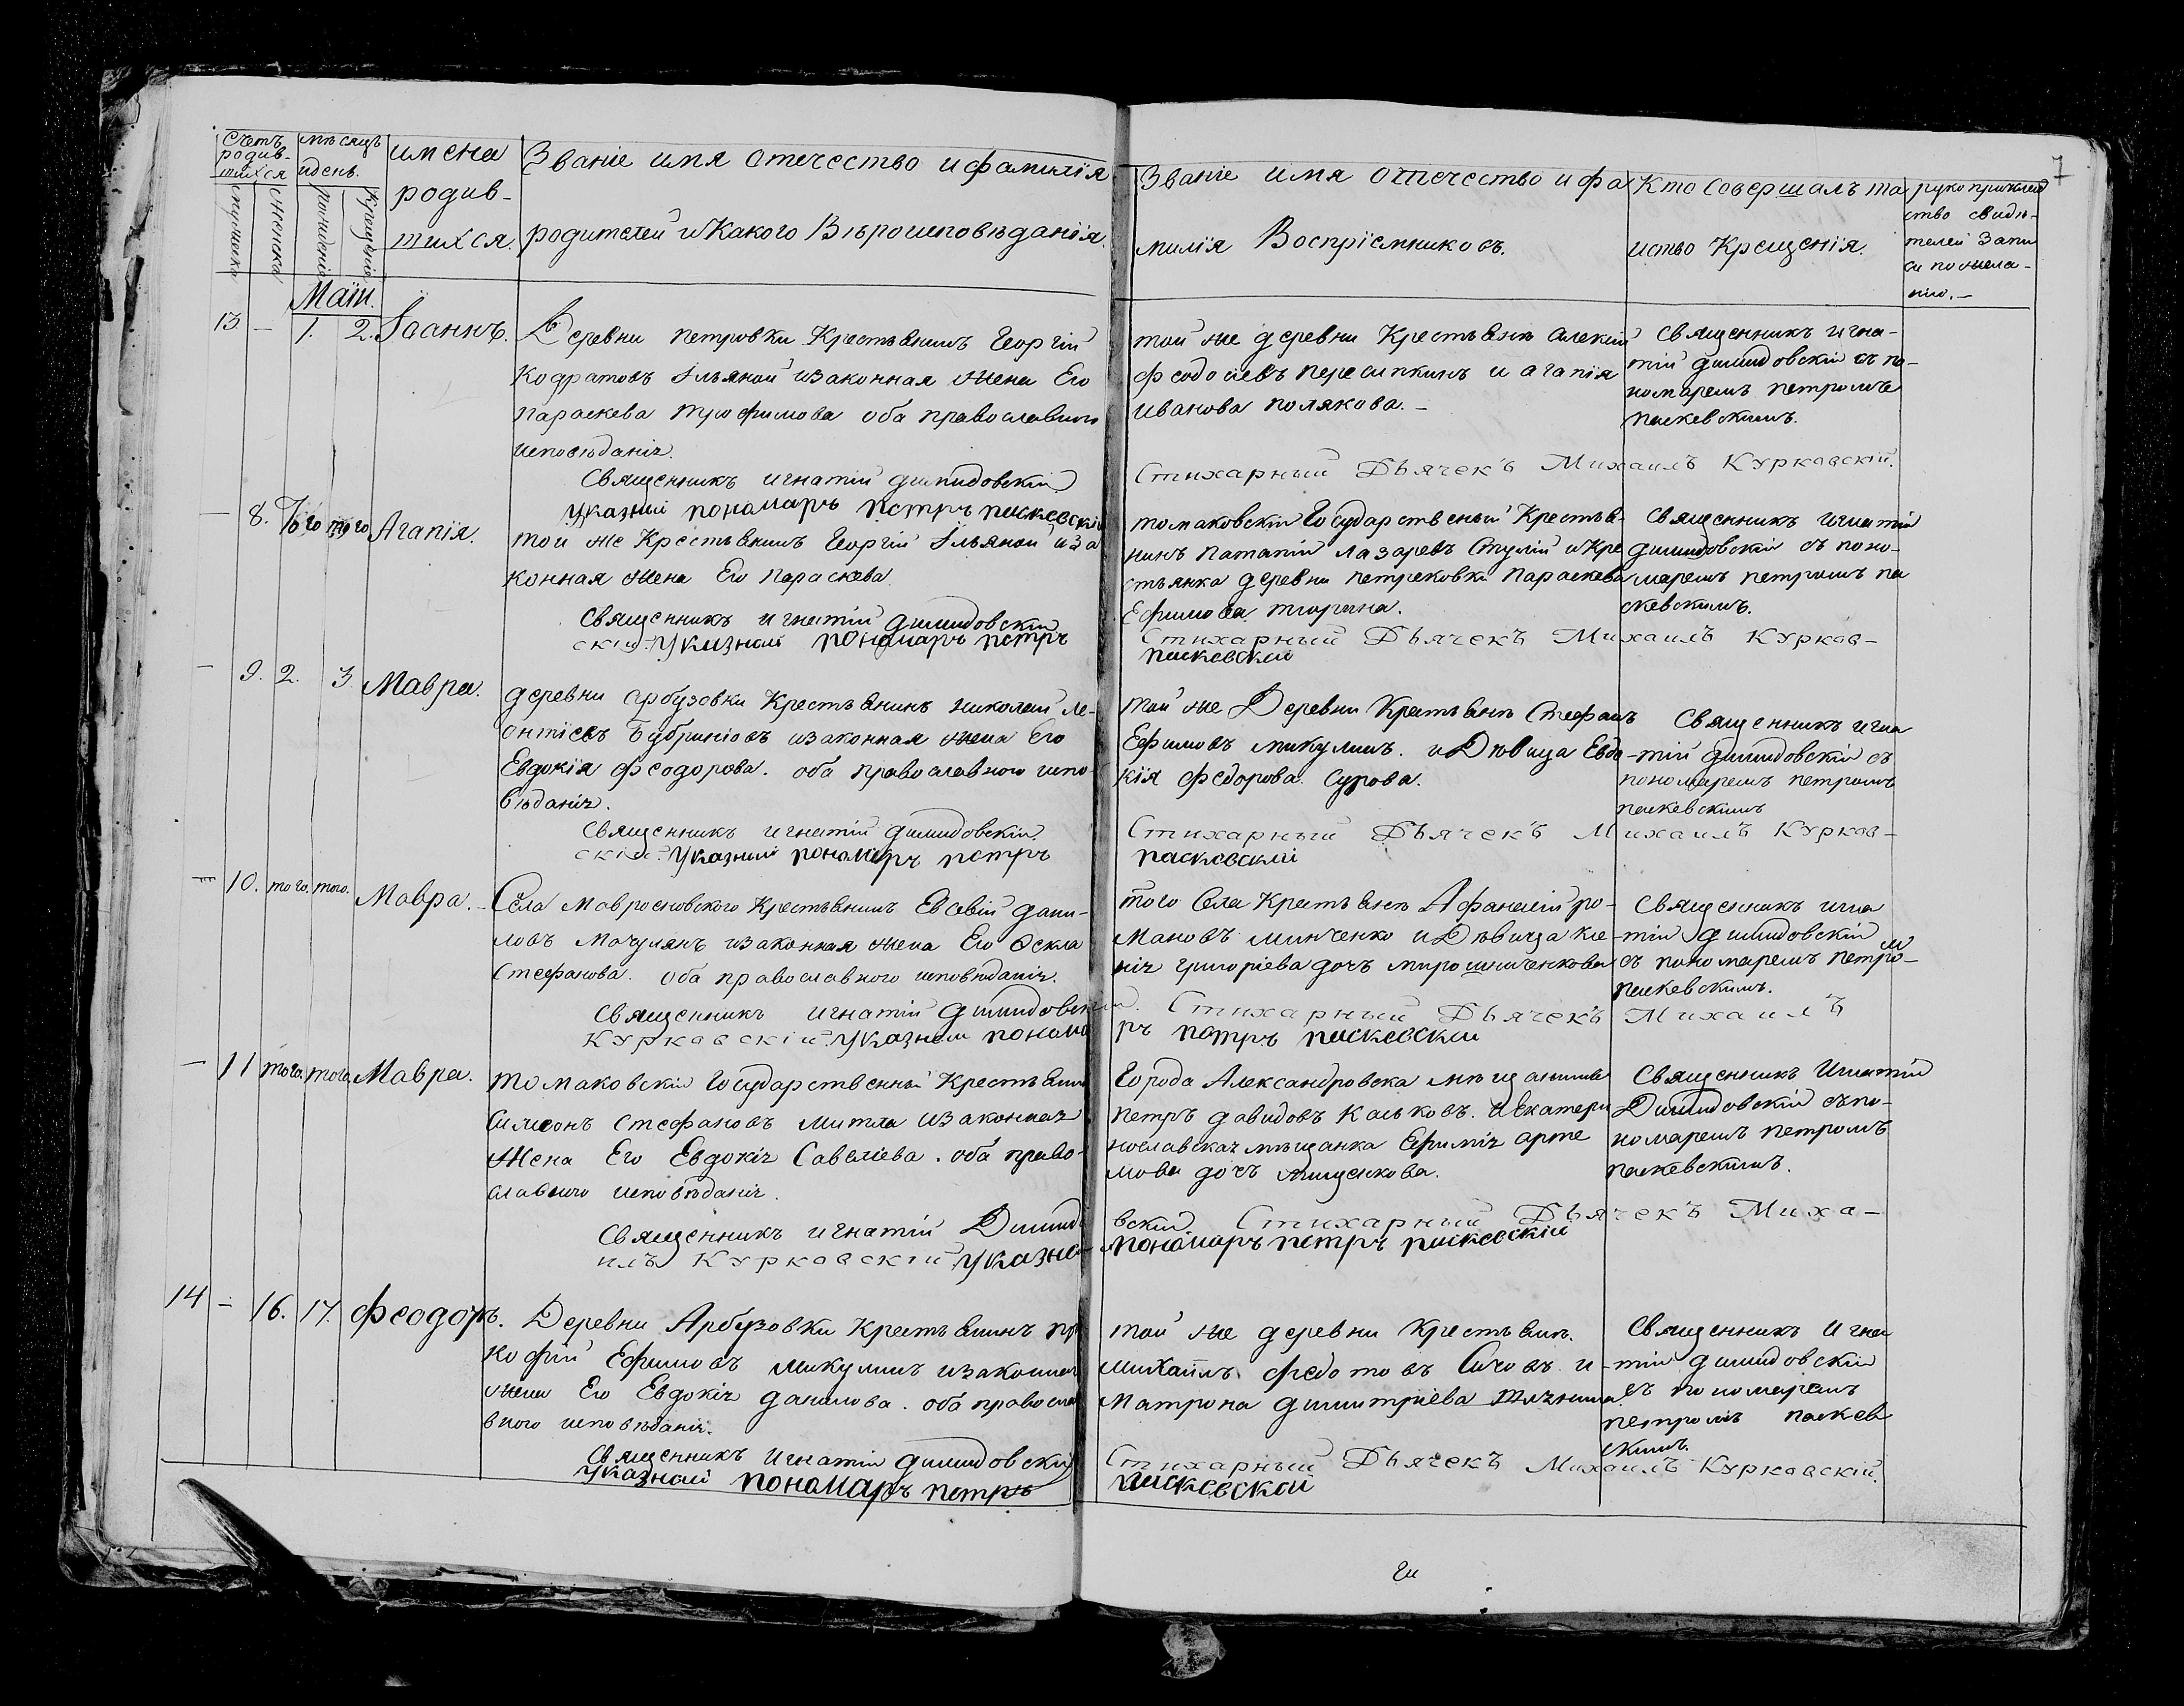 7
Счетъ родив-шихся
мѣсяцъ идень.
имена родив-шихся.
Званіе имя отечество ифамилія
родителей икакого Вѣроисповѣданія.
Званіе имя отечество ифа
милія Воспріемниковъ.
Кто совершалъ та
инство Крещенія.
рукоприклад
ство свидѣ-
телей запи
си пожела-
нію.-
Рожденія
Крещенія
Маій.
13 - 1. 2. Іоаннъ.
Деревни петровки Крестьянинъ Георгій
Кодратовъ Ільяной изаконная жена Его
параскева трофимова оба православного
исповѣданія.
Священникъ игнатій димидовскій
указный пономарь петръ паскевскій
той же деревни Крестьянъ алексій
феодосіевъ пересипкинъ и агапія
иванова полякова.-
Стихарный Дьячекъ Михаилъ Курковскій.
Священникъ игна-
тій димидовскій съ по-
номаремъ петромъ
паскевскимъ.
- 8. того того Агапія.
той же Крестьянинъ Георгій Ільяной иза
конная жена Его параскева
Священникъ игнатій димидовскій
скій. указный пономарь петръ
томаковскій Государственый Крестья-
нинъ пататій лазаревъ Стулій икре
стьянка деревни петрековки параскева
Ефимова тюрина.
Стихарный Дьячекъ Михаилъ Курков-
паскевский
Священникъ игнатій
димидовскій съ поно-
маремъ петромъ па
скевскимъ.
- 9. 2. 3 Мавра.
деревни арбузовки Крестьянинъ николай ле-
онтіевъ изаконная жена Его
Евдокія феодорова. оба православного испо-
вѣданія.
Священникъ игнатій димидовскій
скій указный пономарь петръ
той же Деревни Крестьянъ Стефанъ
Ефимовъ микулинъ. иДѣвица Евдо-
кія федорова Сурова.
Стихарный Дьячекъ Михаилъ Курков-
паскевский
Священникъ игна
тій димидовскій съ
пономаремъ петромъ
паскевскимъ
- 10. того. того. Мавра.
Села мавросновского Крестьянинъ Евсевій дани-
ловъ мачулянъ изаконная жена Его Өекла
Стефанова. оба православного исповѣданія.
Священникъ игнатій димидовский
Курковскій. указный понома
того Села Крестьянъ Афанасій ро-
мановъ минченко иДѣвица ксе-
нія григоріева дочь мирошниченкова
Стихарный Дьячекъ Михаилъ
ръ петръ паскевский
Священникъ игна
тій димидовскій
съ пономаремъ петро-м
паскевскимъ.
- 11 того. того. Мавра.
томаковскій Государственный Крестьянинъ
симеонъ стефановъ митла изаконная
жена Его Евдокія Савеліева. оба право-
славного исповѣданія.
Священникъ игнатій Димидо
илъ Курковскій указно-
Города Александровска мѣщанинъ
петръ давидовъ каньковъ. иЕкатери
нославская мѣщанка Ефимія арте
мова дочь мищенкова.
вский Стихарный Дьячекъ Миха-
пономарь петръ паскевскій
Священникъ Игнатій
Димидовскій съ по-
номаремъ петромъ
паскевскимъ.
14 - 16. 17. феодоръ.
Деревни Арбузовки Крестьянинъ про
кофій Ефимовъ микулинъ изаконная
жена Его Евдокія данилова. оба правосла
вного исповѣданія.
Священникъ Игнатій димидовскій
указный пономарь петръ
той же деревни Крестьянъ.
михаилъ федотовъ Сичовъ и-
матрона димитріева
Стихарный Дьячекъ Михаилъ Курковскій.
паскевской
Священникъ Игна
тій димидовскій
съ пономаремъ
петромъ паскев
скимъ.